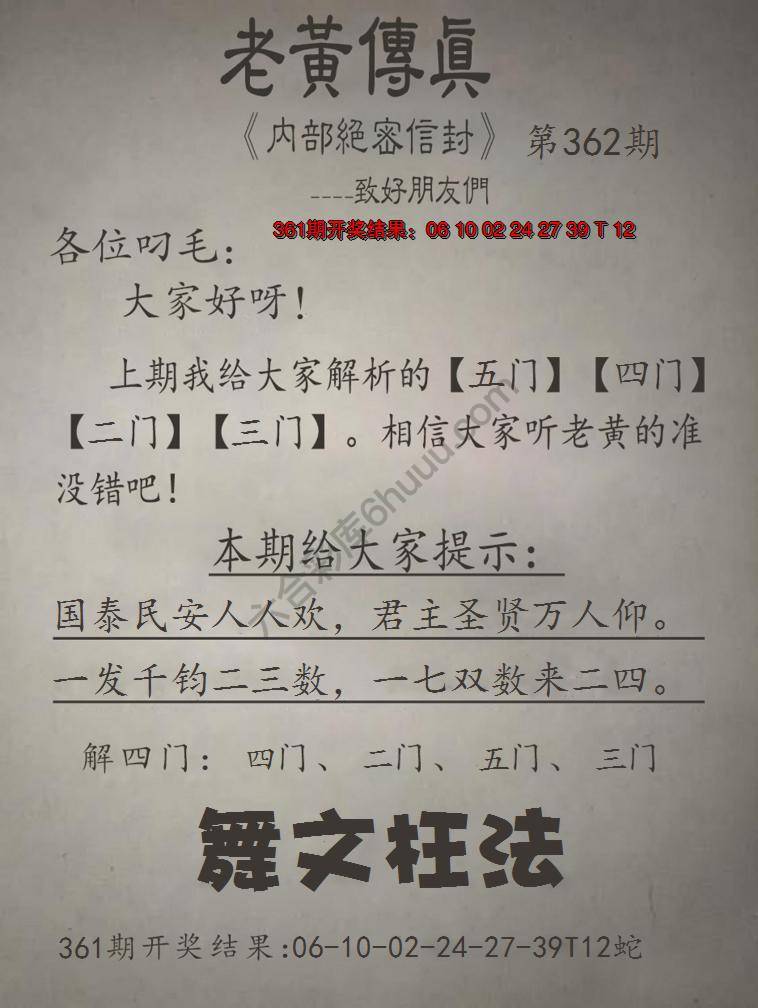 老黃傳眞
《内部絕密信封》 第362期
----致好朋友們
361期开奖结果：06 10 02 24 27 39 T 12
各位叼毛：
大家好呀！
上期我给大家解析的【五门】【四门】
【二门】【三门】。相信大家听老黄的准
没错吧！
本期给大家提示：
国泰民安人人欢，君主圣贤万人仰。
一发千钧二三数，一七双数来二四。
解四门： 四门、 二门、 五门、 三门
舞文枉法
361期开奖结果:06-10-02-24-27-39T12蛇
六合彩库6huuu.com